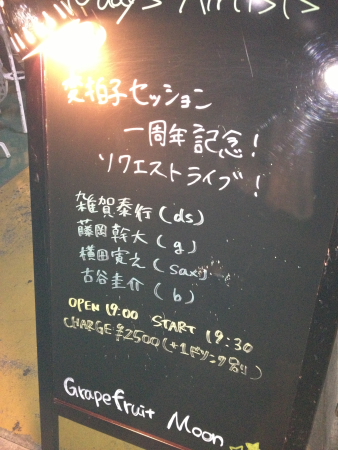 Today's Artists
変拍子セッション
一周年記念!
リクエストライブ!
雑賀泰行(ds)
藤岡幹大(g)
横田寛之(sax)
古谷圭介(b)
OPEN 19:00 START 19:30
CHARGE ¥2500(+1ドリンク別り)
Grapefruit Moon